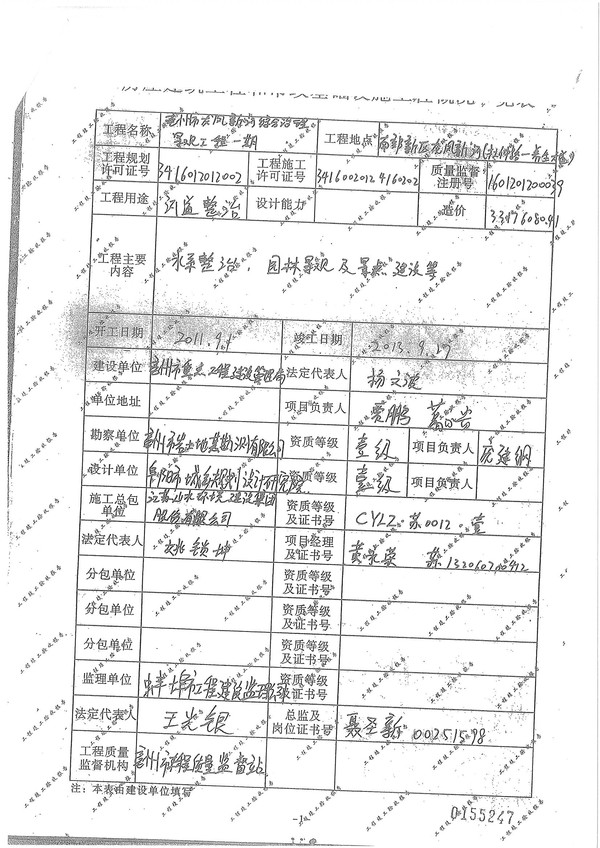 房屋建筑工程和市政基础设施工程概况一览表
工程名称 亳州市龙凤新河综合治理 景观工程一期 工程地点
工程规划许可证号 3416012012002 工程施工许可证号 34160020124160202 质量监督注册号 1601201200039
工程用途 河道整治 设计能力 造价
工程主要内容 水系整治、园林景观及景点建设等
开工日期 2011.9.1 竣工日期 2013.9.29
建设单位 亳州市重点工程建设管理局 法定代表人
单位地址 项目负责人 贾鹏
勘察单位 资质等级 壹级 项目负责人
设计单位 阜阳市城乡规划设计研究院 资质等级 壹级 项目负责人
施工总包单位 江苏山水环境建设集团股份有限公司 资质等级及证书号 CYLZ·苏0012·壹
法定代表人 姚锁坤 项目经理及证书号
分包单位 资质等级及证书号
分包单位 资质等级及证书号
分包单位 资质等级及证书号
监理单位 蚌埠市工程建设监理
法定代表人 王光银 总监及岗位证书号 聂圣新 00251598
工程质量监督机构 亳州市工程质量监督站
注：本表由建设单位填写
-1-
0155247
工程竣工验收报告